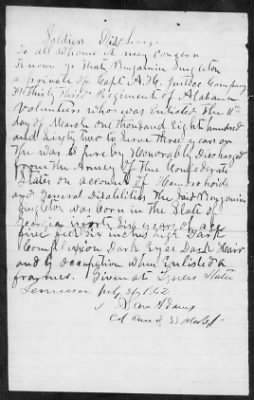 Soldier Discharge
To all whome it may Concern
Know ye that Benjamin Singleton
a private of Capt A. H. Company
Thirty Third Regiment of Alabama
Volunteers who was Enlisted the 11th
day of March one thousand Eight hundred
and Sixty two to Serve three years or
the war is hereby Honorably Discharged
from the Army of the Confederate
States on account of Hemorhoids
and General Disabilities the Said Benjamin
Singleton was born in the State of
Georgia Six years of age
five feet Six inches high Dark
Complexion Dark Eyes Dark Hair
and by occupation when Enlisted a
farmer. Given at Tyners Station
July 31 1862
Adams
Col 33